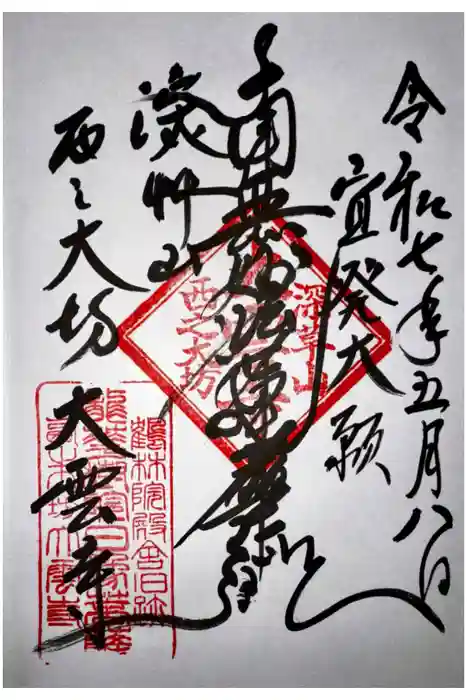 令和七年五月八日
宜發大願
南無妙法蓮華経
深艸山
西之大坊
大雲寺
深草山
西之大坊
鶴林院殿舎旧跡